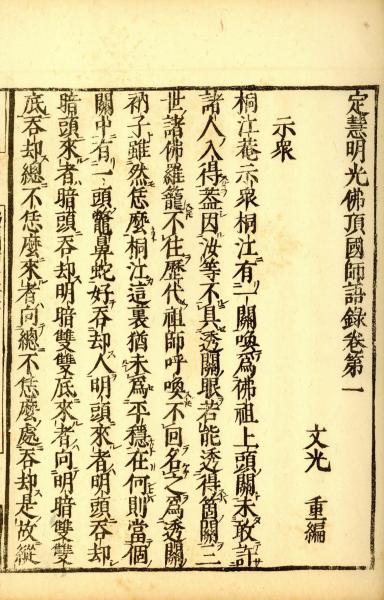 定慧明光佛頂國師語錄卷第一
文光 重編
示衆
桐江菴示衆桐江有一關喚爲佛祖上頭關未敢許
諸人入得蓋因汝等不具透關眼若能透得箇關三
世諸佛羅籠不住歷代祖師呼喚不回名之爲透關
衲子雖然恁麼桐江這裏猶未爲平穩在何則當個
關中有一頭鼈鼻蛇好吞却人明頭來者明頭吞却
暗頭來者暗頭吞却明暗雙雙底來者向明暗雙雙
底吞却總不恁麼來者向總不恁麼處吞却是故縱